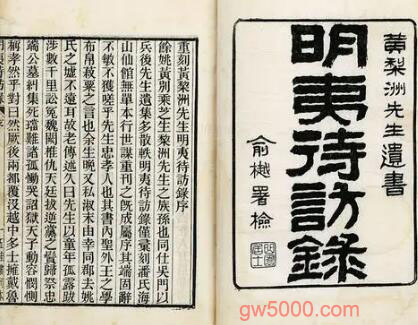 黃梨洲先生遺書
明夷待訪錄
俞樾署檢
重刻黃梨洲先生明夷待訪錄序
餘姚黃別乘芝生梨洲先生之族孫也同仕吳門以
兵後先生遺集多散軼明夷待訪錄僅彙刻潘氏海
山仙館無單本行世謀重刊之旣成屬序其端固辭
不敏不獲嗟乎先生忠孝人也其書內聖外王之學
布帛菽粟之言也余生晚又私淑末由幸同郡去姚
氏之墟不遠耳故老傳述久日先生以童年孤露跋
涉數千里訟冤魏闕椎仇大廷拔逆黨之鬢歸祭忠
端公墓糾集死璫難諸孤慟哭詔獄天子動容憫惻
稱孝然乎對曰然厥後兩都覆沒越中多士擁戴魯
gw5000.com